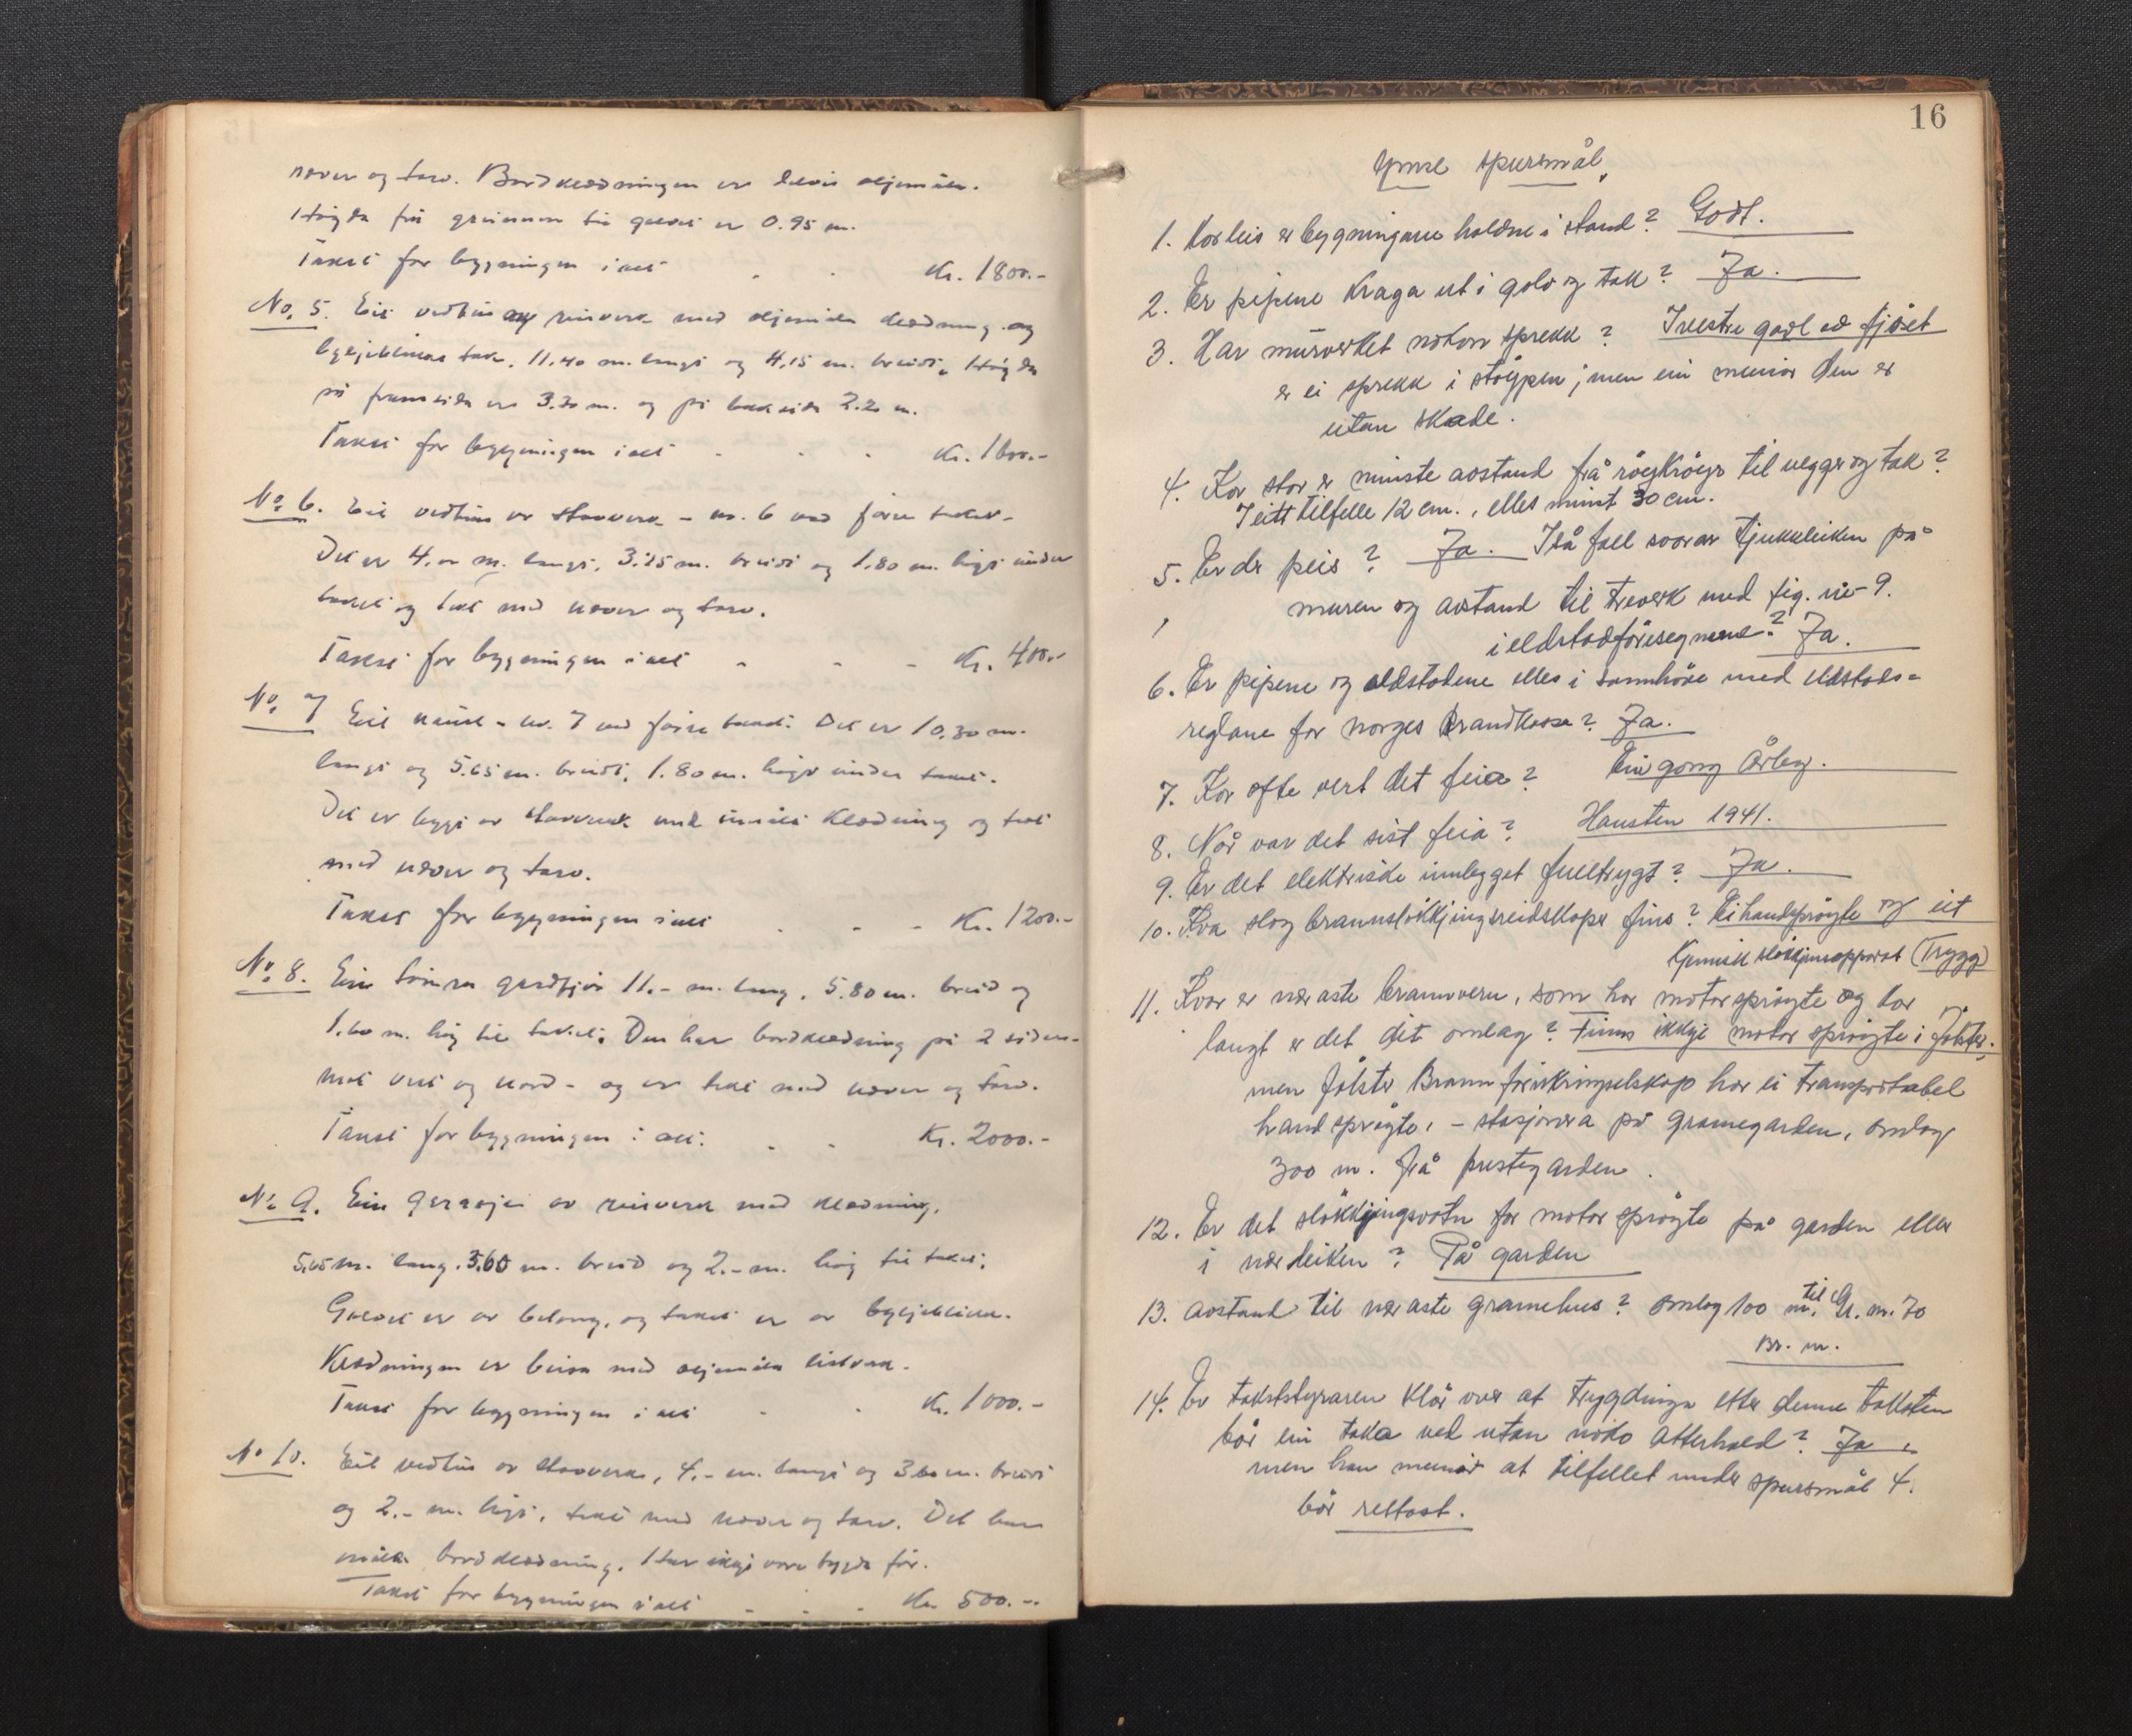 never og torv. Bordklædningen er delvis oljemåla.
Høgda frå grunnmur til golvet er 0.95 m.
Takst for bygningen i alt Kr. 1800.-
No. 5. Eit vedhus av reisverk med oljemåla klædning og
bylgjeblikks tak, 11.40 m. langt og 4.15 m. breidt. Høgda
på framsida er 3.30 m. og på baksida 2.20 m.
Takst for bygningen i alt Kr. 1600.-
No. 6. Eit vedhus av stavverk - nr. 6 ved førre takst.
Det er 4.00 m. langt, 3.25 m. breidt og 1.80 m. høgt under
taket og tekt med never og torv.
Takst for bygningen i alt Kr. 400.-
No. 7 Eit naust - nr. 7 ved førre takst. Det er 10.30 m.
langt og 5.65 m. breidt, 1.80 m. høgt under taket.
Det er bygt av stavverk med umåla klædning og tekt
med never og torv.
Takst for bygningen i alt Kr. 1200.-
No. 8. Ein tømra gardfjøs 11.- m. lang, 5.80 m. breid og
1.60 m. høg til taket. Den har bordklædning på 2 sider -
mot vest og nord - og er tekt med never og torv.
Takst for bygningen i alt. Kr. 2000.-
No 9. Ein garasje av reisverk med klædning,
5.05 m. lang, 3.60 m. breid og 2.- m. høg til taket.
Golvet er av betong, og taket er av bylgjeblikk.
Klædningen er beisa med oljemåla listverk.
Takst for bygningen i alt Kr. 1000.-
No 10. Eit vedhus av stavverk, 4.- m. langt og 3.60 m. breidt
og 2.- m. høgt, tekt med never og torv. Det har
umåla bordklædning. Har ikkje vore bygda før.
Takst for bygningen i alt Kr. 500.-
16
Ymse spursmål.
1. Korleis er bygningane haldne i stand? Godt.
2. Er pipene kraga ut i golv og tak? Ja.
3. Har murverket nokon sprekk? I vestre gavl av fjøset
er ei sprekk i støypen; men ein meinar den er
utan skade.
4. Kor stor er minste avstand frå røykrøyr til vegger og tak?
I eitt tilfelle 12 cm., elles minst 30 cm.
5. Er der peis? Ja. I så fall svarar tjukkleiken på
muren og avstand til treverk med fig. nr. 9.
i eldstadføresegnene? Ja.
6. Er pipene og eldstadene elles i samhøve med eldstads-
reglane for Norges Brandkasse? Ja.
7. Kor ofte vert det feia? Ein gong årleg.
8. Når var det sist feia? Hausten 1941.
9. Er det elektriske innlegget fulltrygt? Ja.
10. Kva slag brannsløkkjingsreidskapar fins? Ei handsprøyte og eit
kjemisk sløkkjingsapparat (Trygg)
11. Kvar er næraste brannvern, som har motorsprøyte og kor
langt er det dit omlag? Finns ikkje motorsprøyte i Jølster.
men Jølster Brannforsikringselskap har ei transportabel
handsprøyte, - stasjonera på granegarden, omlag
300 m. frå prestegarden.
12. Er det sløkkjingsvatn for motorsprøyte på garden eller
i nærleiken? På garden
13. Avstand til næraste granehus? Omlag 100 m. til G. nr. 70
Br. nr.
14. Er takststyraren klår over at trygdinga etter denne taksten
bør ein taka ved utan noko atterhald? Ja,
men han meinar at tilfellet under spursmål 4.
bør rettast.